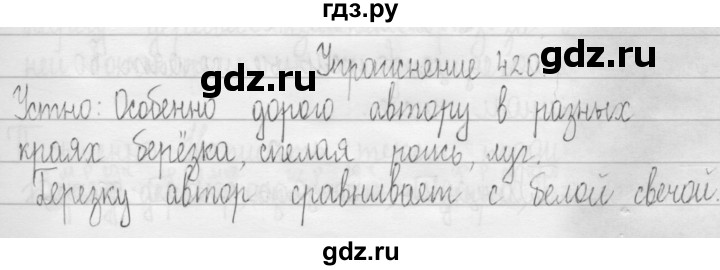 гдз.ру
Упражнение 420.
gdz.ru
gdz.ru
Устно: Особенно дорого автору в разных
краях берёзка, спелая рожь, луг.
Березку автор сравнивает с белой свечой.
gdz.ru